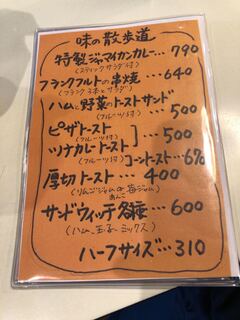 味の散歩道
特製ジャマイカンカレー…790
(スティックサラダ付)
フランクフルトの串焼…640
(フランク3本とサラダ)
ハムと野菜のトーストサンド
(フルーツ付)…500
ピザトースト
(フルーツ付)]…500
ツナカレートースト
(フルーツ付) コーントースト…670
厚切トースト…400
(りんごジャム or 苺ジャム)
あんこ
サンドウィッチ各種…600
(ハム、玉子、ミックス)
ハーフサイズ…310